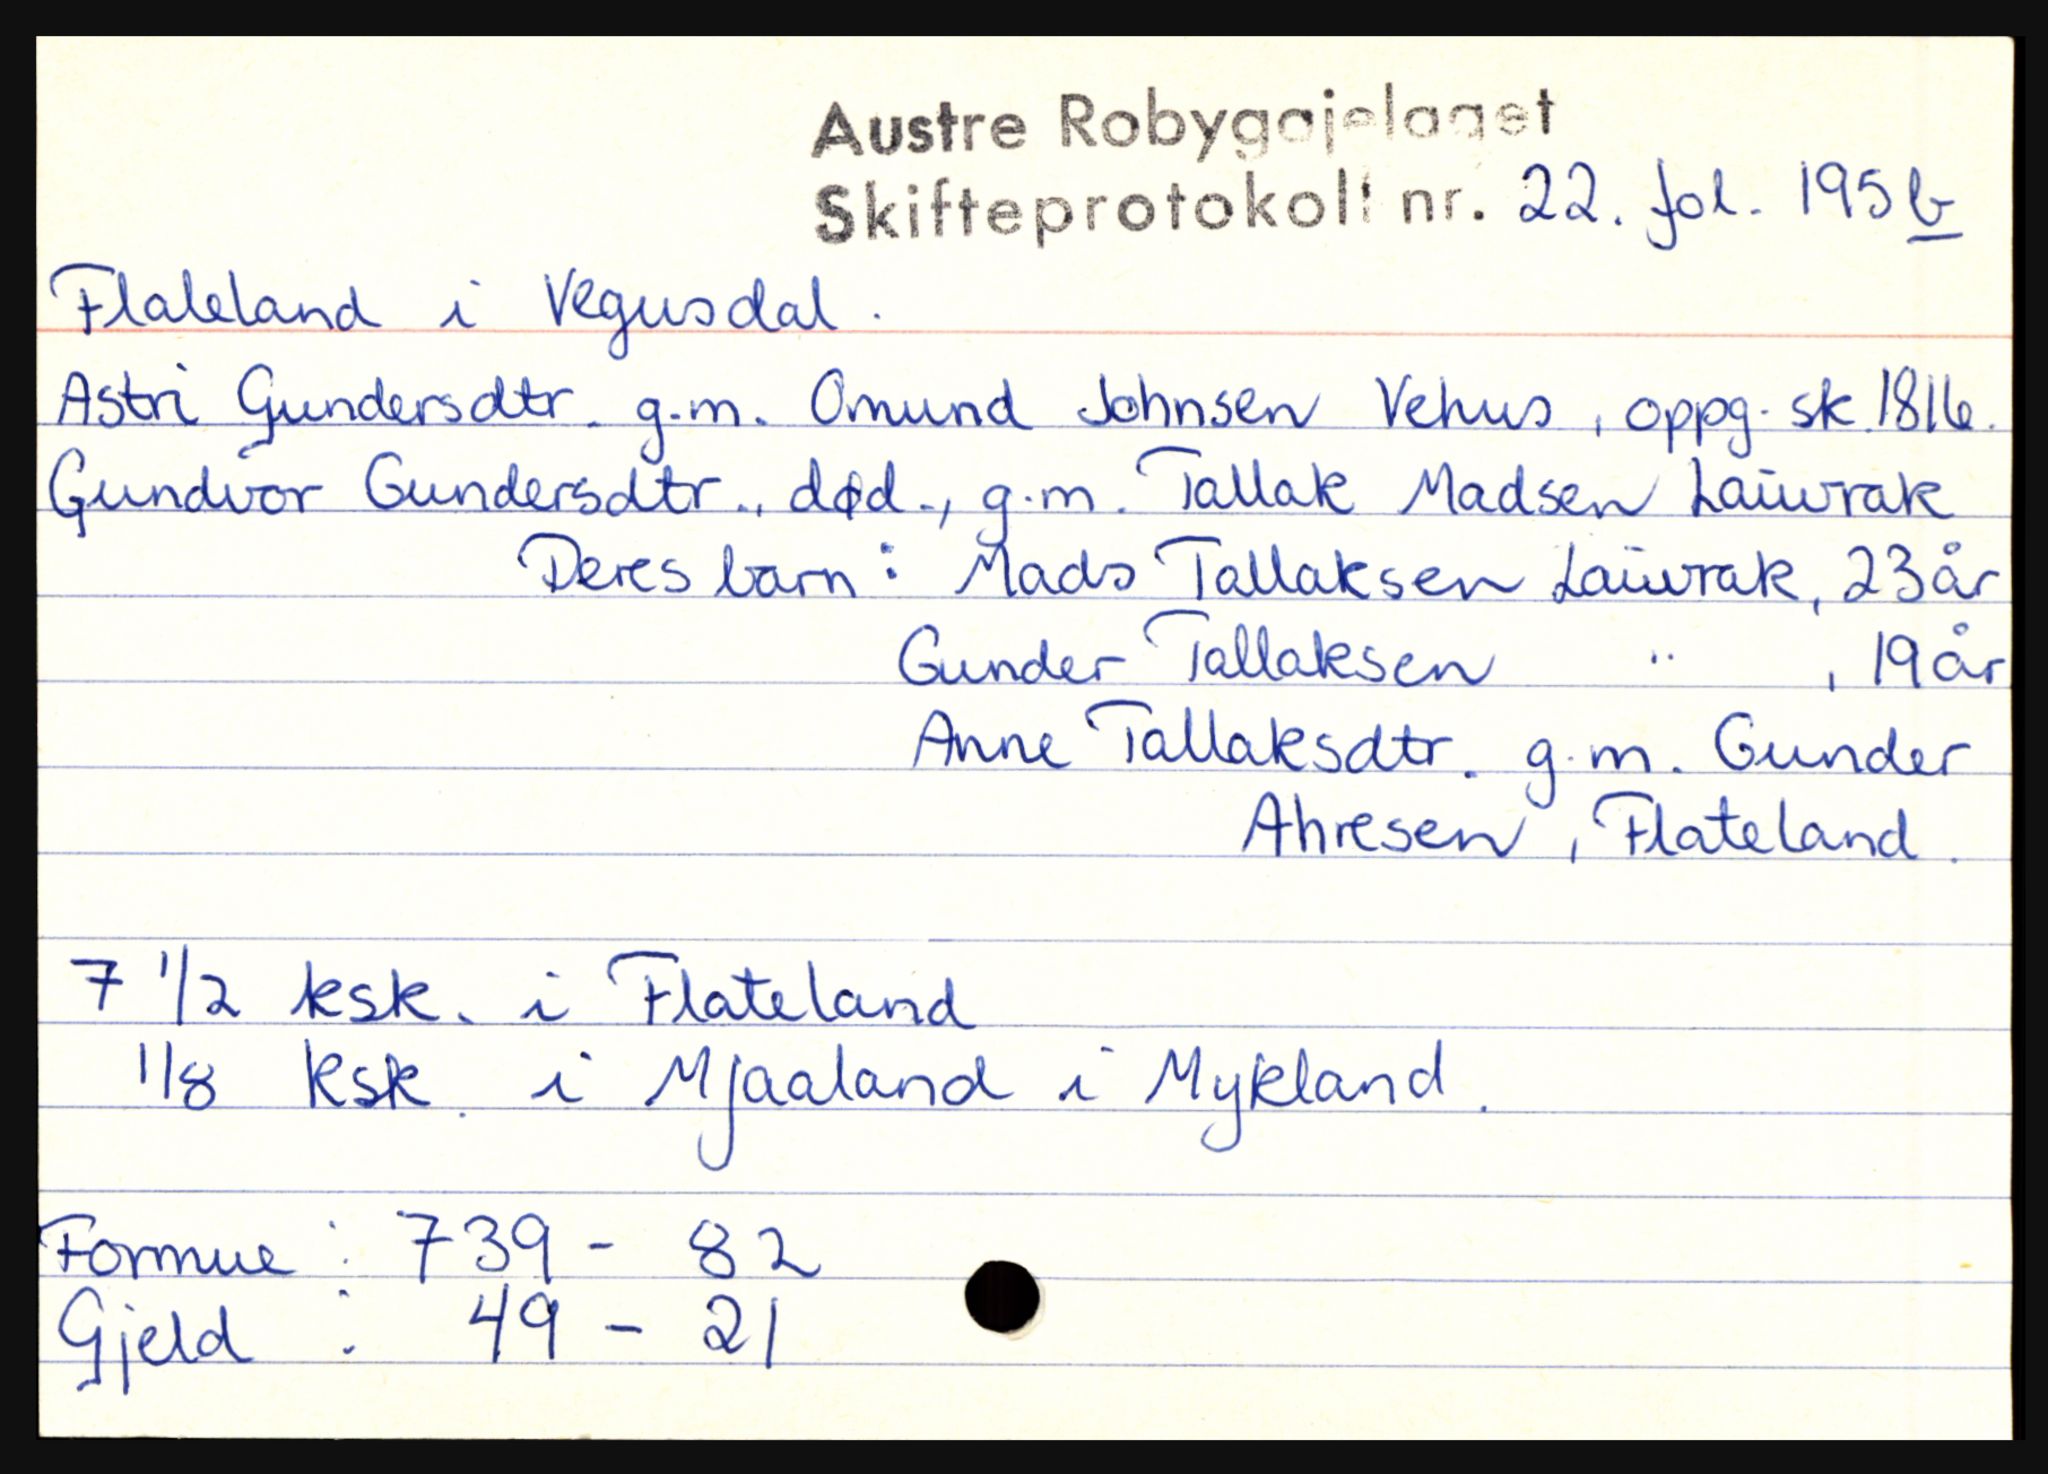 Austre Robygajelaget
Skifteprotokoll nr. 22. fol. 195 b
Flateland i Vegusdal.
Astri Gundersdtr. g.m. Omund Johnsen Vehus, oppg. sk. 1816.
Gundvor Gundersdtr., død., g.m. Tallak Madsen Lauvrak
Deres barn: Mads Tallaksen Lauvrak, 23 år
Gunder Tallaksen " , 19 år
Anne Tallaksdtr. g.m. Gunder
Ahresen, Flateland.
7 1/2 ksk. i Flateland
1/8 ksk. i Mjaaland i Mykland.
Formue: 739 - 82
Gjeld: 49 - 21